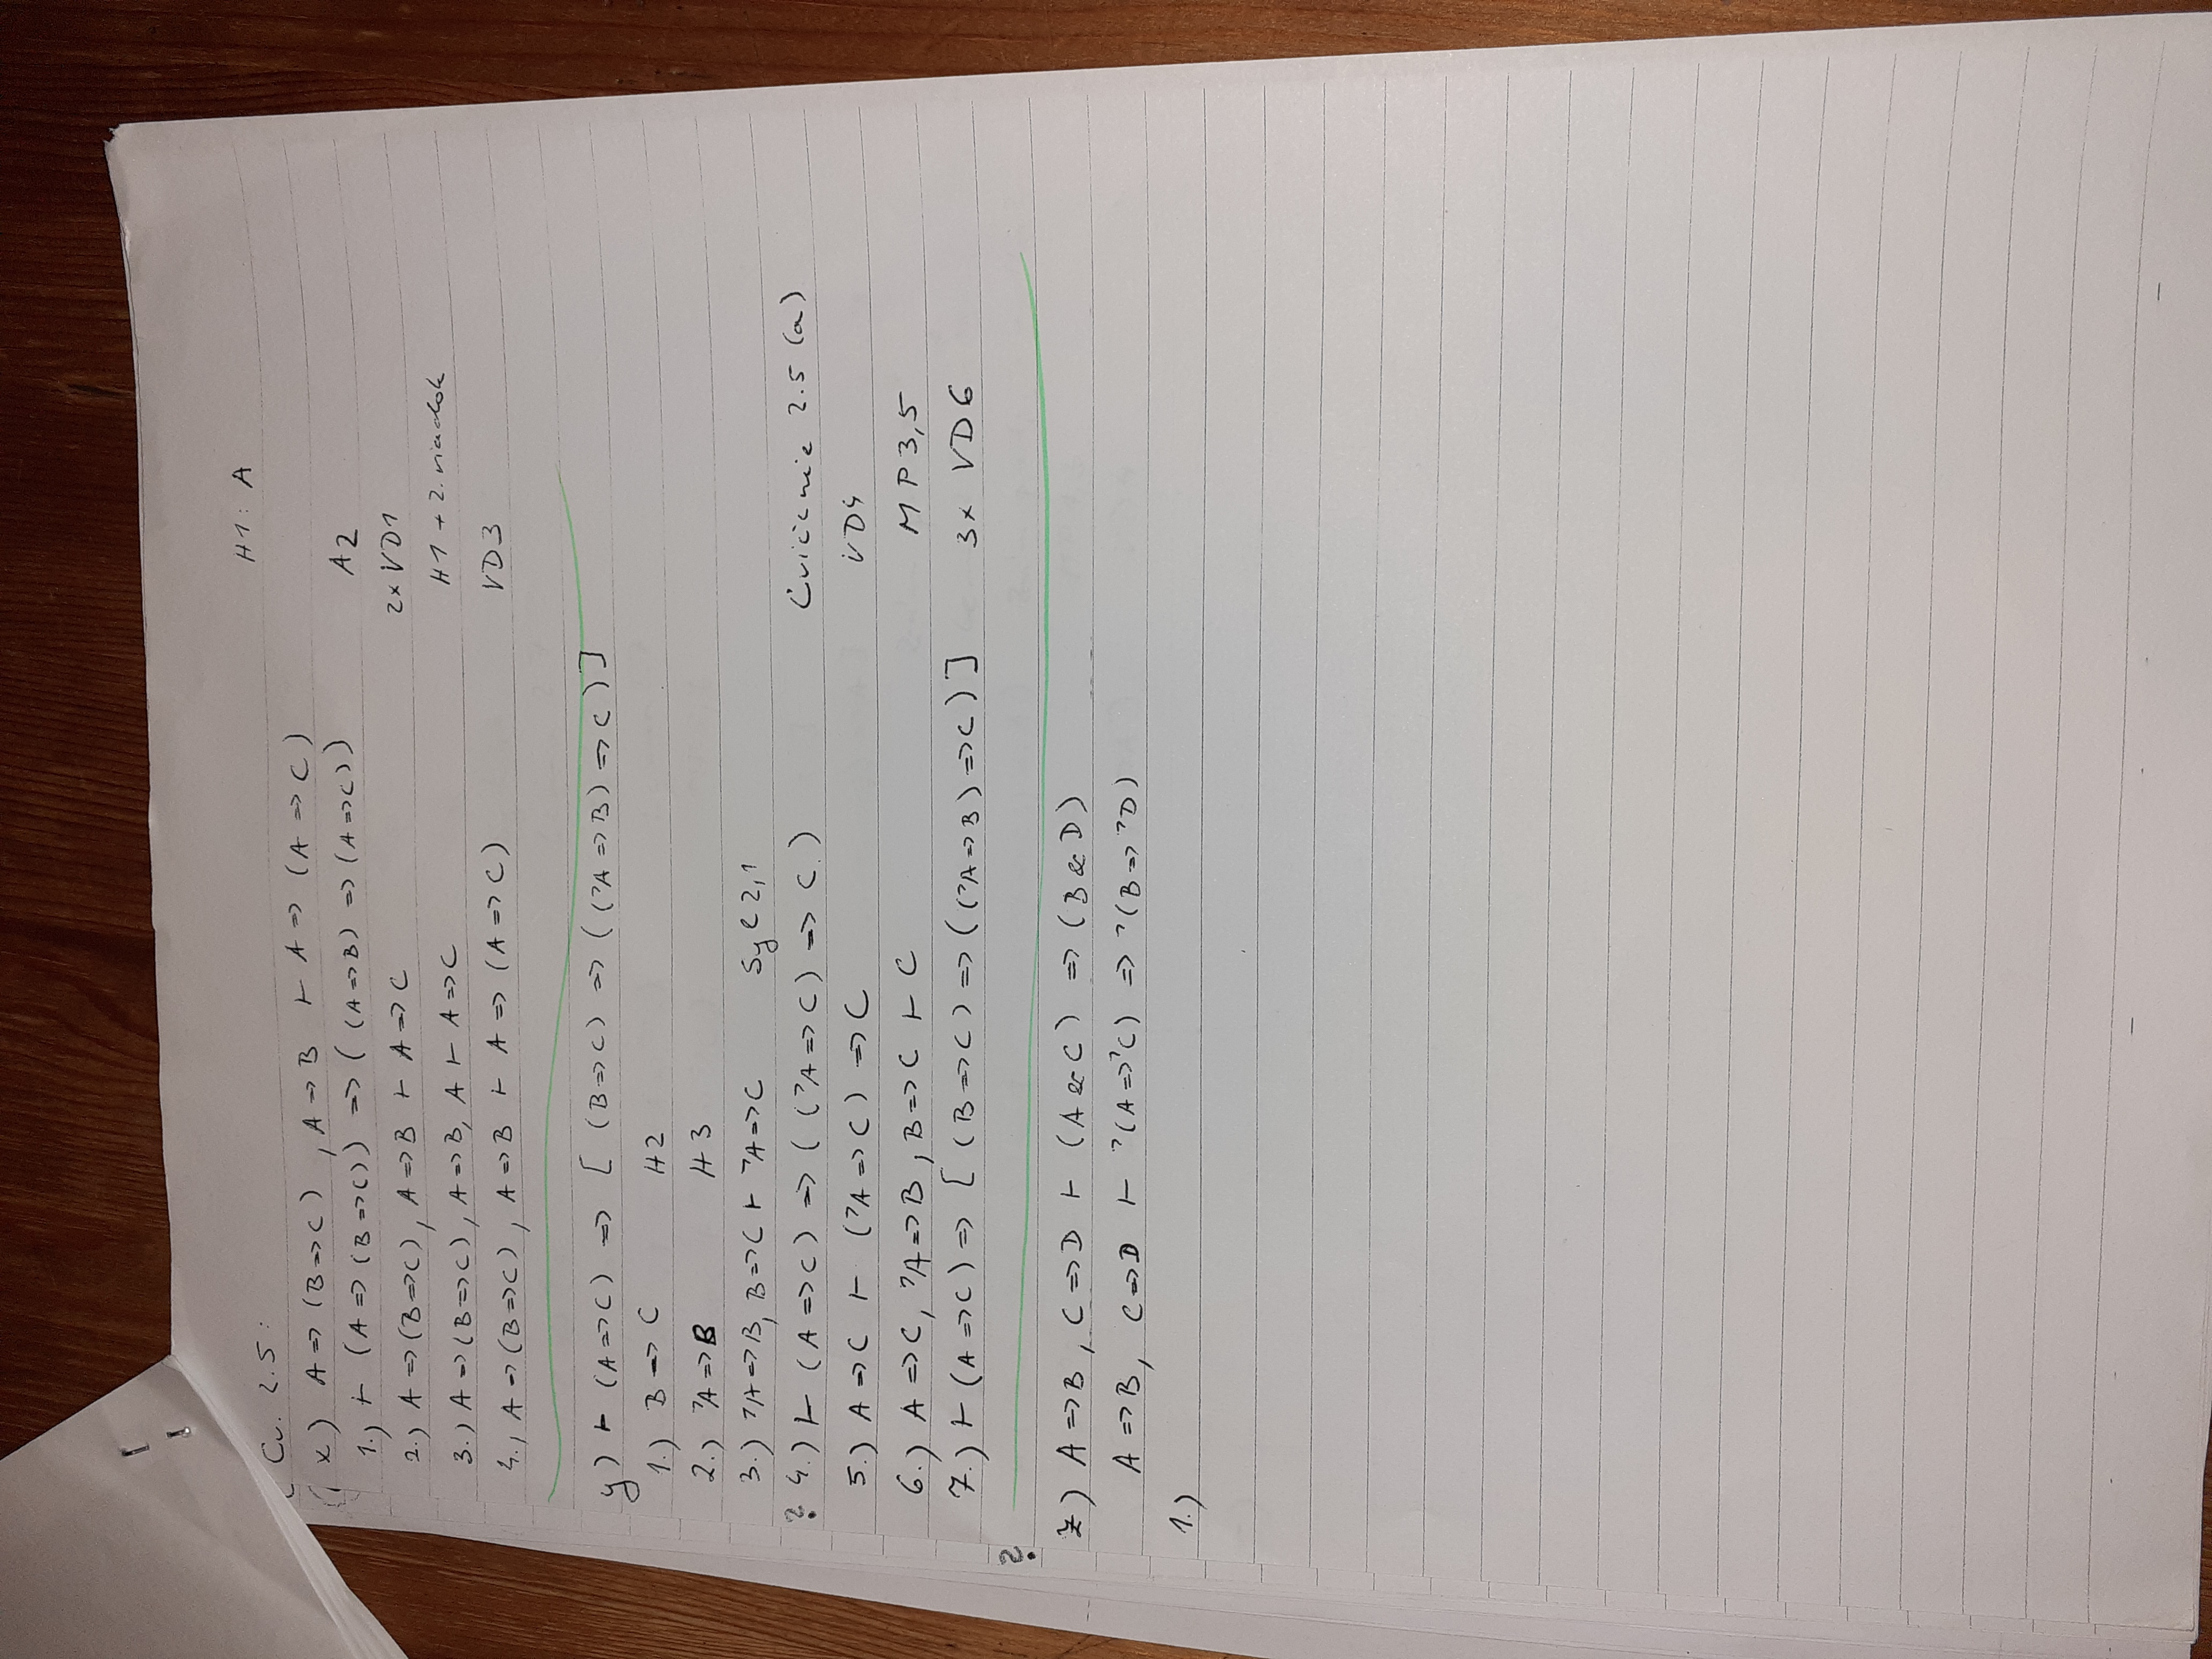 Cv. 2.5: H1: A
x) A => (B => C), A => B ⊢ A => (A => C)
1.) ⊢ (A => (B => C)) => ((A => B) => (A => C)) A2
2.) A => (B => C), A => B ⊢ A => C 2x VD1
3.) A => (B => C), A => B, A ⊢ A => C H1 + 2. riadok
4., A => (B => C), A => B ⊢ A => (A => C) VD3
y) ⊢ (A => C) => [(B => C) => ((¬A => B) => C)]
1.) B => C H2
2.) ¬A => B H3
3.) ¬A => B, B => C ⊢ ¬A => C Syl 2,1
? 4.) ⊢ (A => C) => ((¬A => C) => C) Cvičenie 2.5 (a)
5.) A => C ⊢ (¬A => C) => C VD4
6.) A => C, ¬A => B, B => C ⊢ C MP 3,5
7.) ⊢ (A => C) => [(B => C) => ((¬A => B) => C)] 3x VD6
?
z) A => B, C => D ⊢ (A & C) => (B & D)
A => B, C => D ⊢ ¬(A => ¬C) => ¬(B => ¬D)
1.)